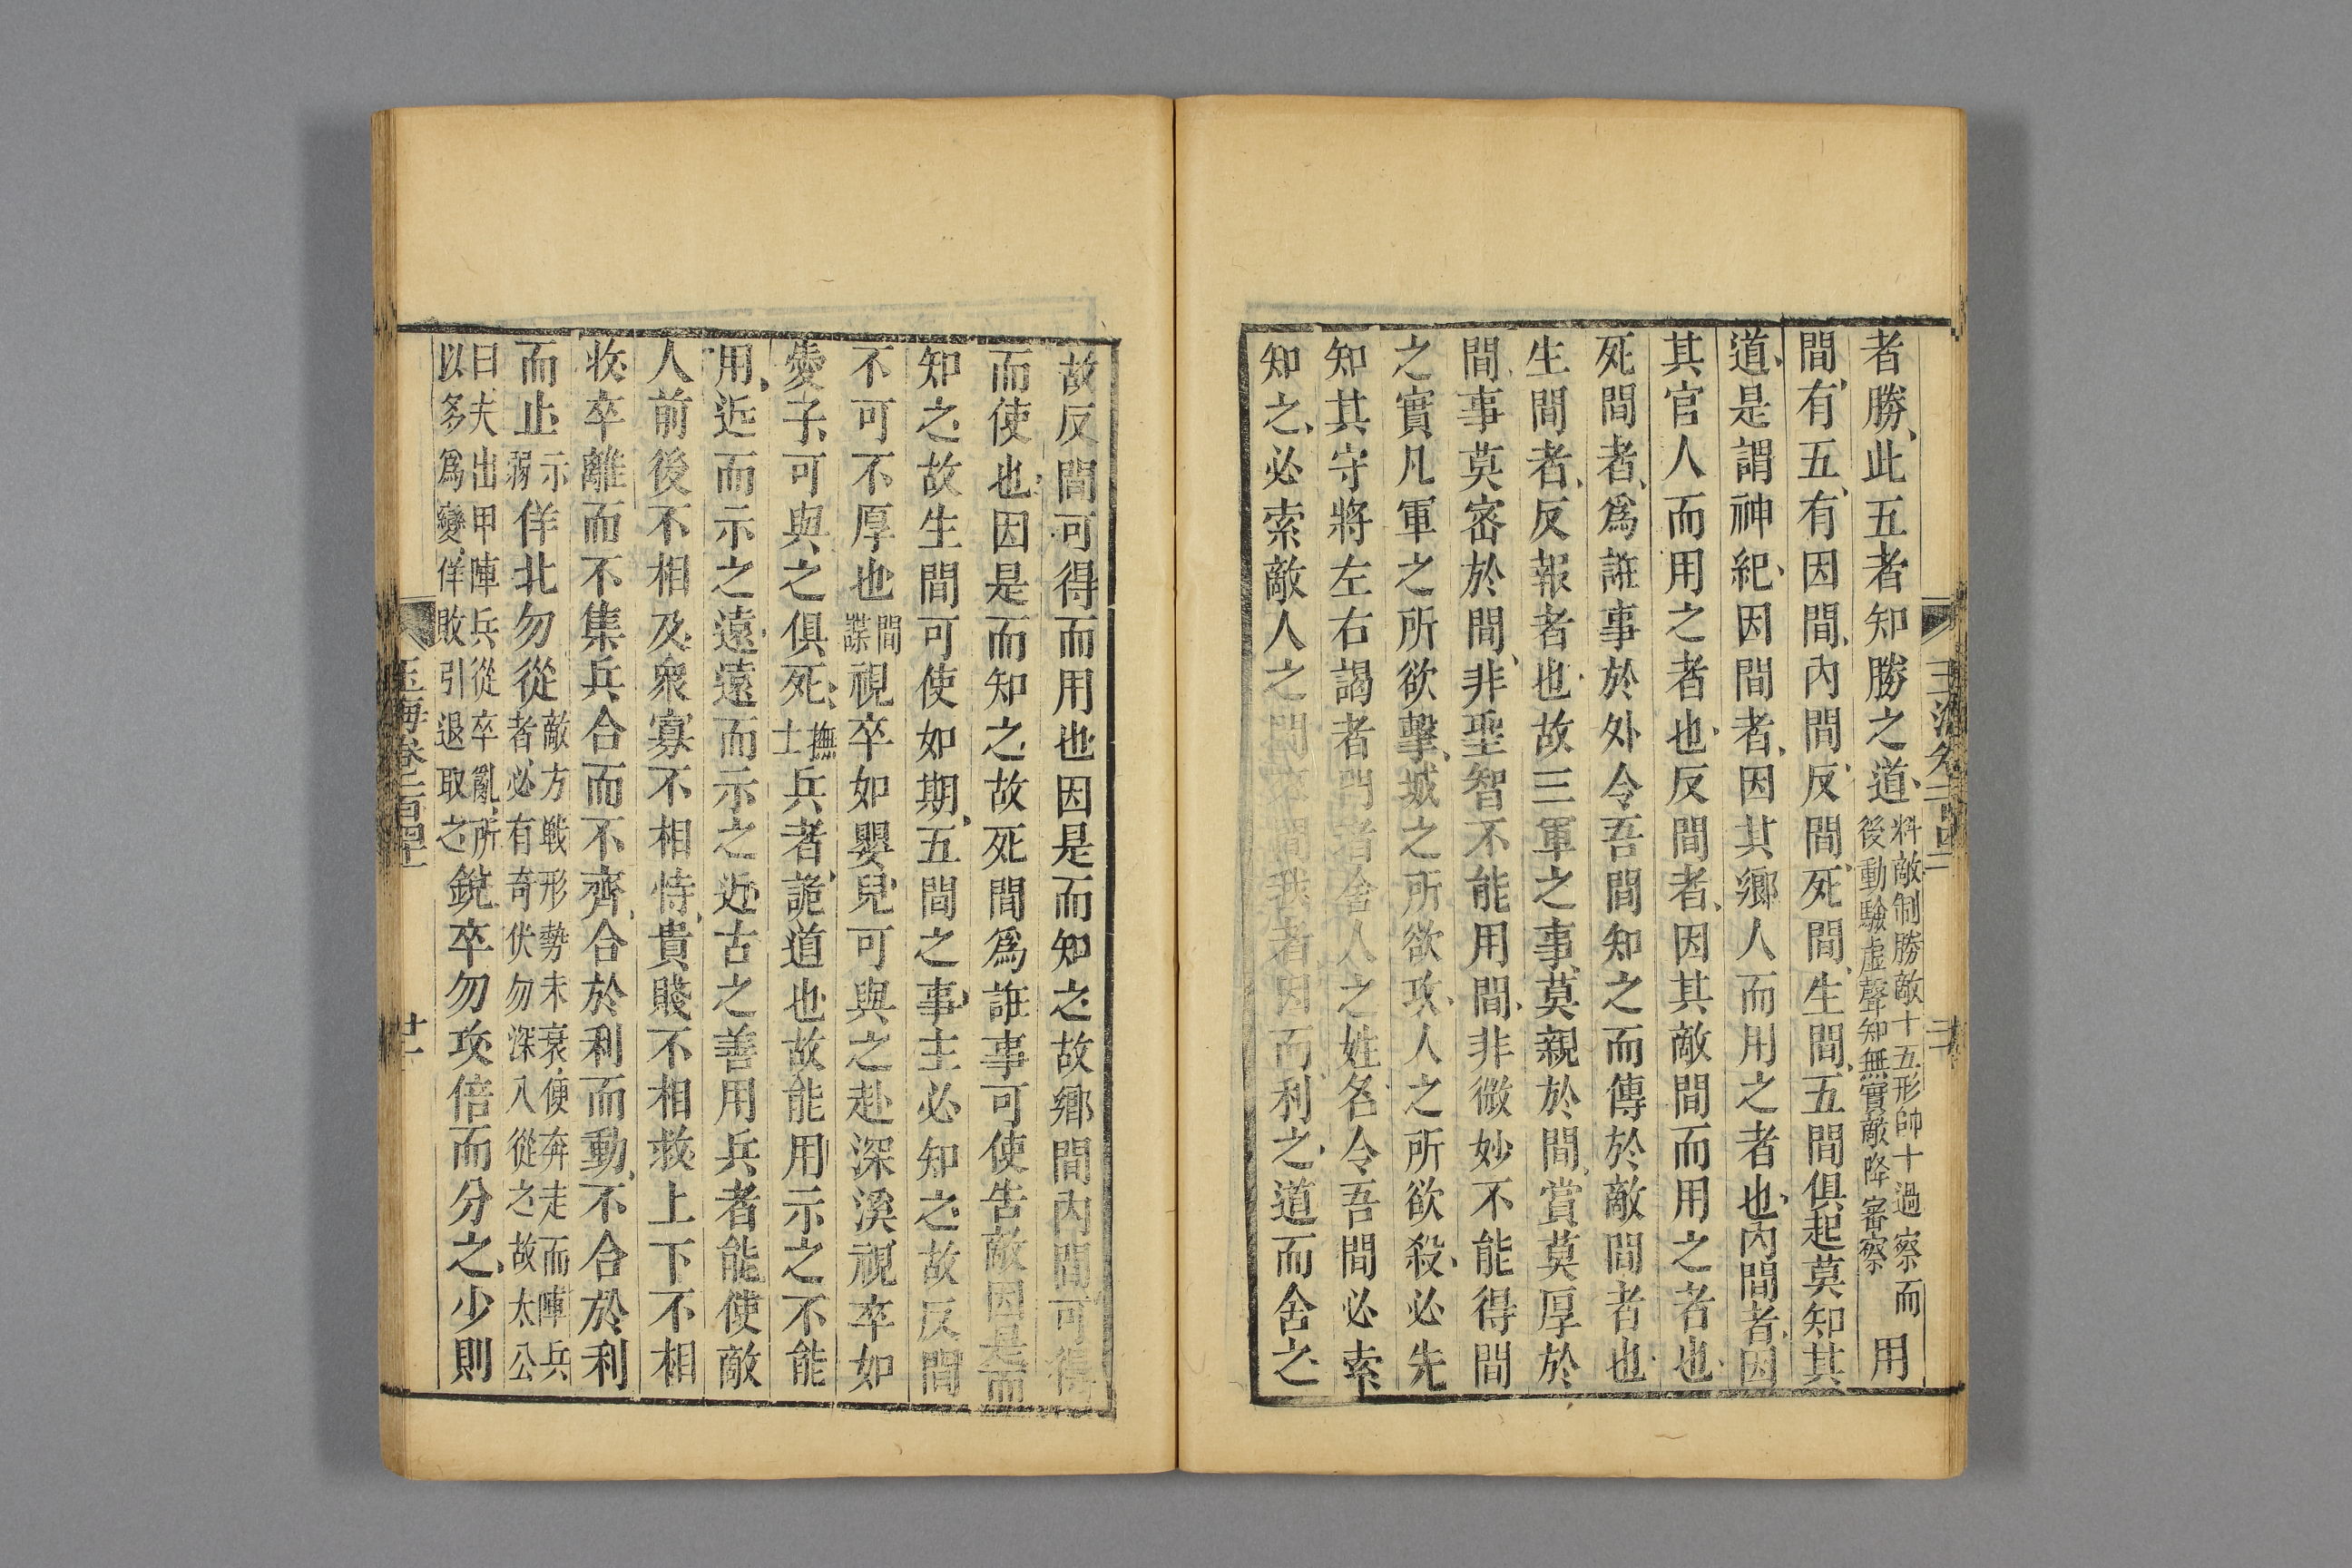 者勝此五者知勝之道料敵制勝敵十五形帥十過察而後動驗虛聲知無實敵降審察用
間有五有因間內間反間死間生間五間俱起莫知其
道是謂神紀因間者因其鄉人而用之者也內間者因
其官人而用之者也反間者因其敵間而用之者也
死間者爲誑事於外令吾間知之而傳於敵間者也
生間者反報者也故三軍之事莫親於間賞莫厚於
間事莫密於間非聖智不能用間非微妙不能得間
之實凡軍之所欲擊城之所欲攻人之所欲殺必先
知其守將左右謁者門者舍人之姓名令吾間必索
知之必索敵人之間來間我者因而利之道而舍之
故反間可得而用也因是而知之故鄉間內間可得
而使也因是而知之故死間爲誑事可使告敵因是而
知之故生間可使如期五間之事主必知之故反間
不可不厚也間諜視卒如嬰兒可與之赴深溪視卒如
愛子可與之俱死撫士兵者詭道也故能用示之不能
用近而示之遠遠而示之近古之善用兵者能使敵
人前後不相及衆寡不相恃貴賤不相救上下不相
收卒離而不集兵合而不齊合於利而動不合於利
而止示弱佯北勿從敵方戰形勢未衰便奔走而陣兵者必有奇伏勿深入從之故太公
曰夫出甲陣兵從卒亂所以多爲變佯敗引退取之銳卒勿攻倍而分之少則
玉海卷一百四十
廿一